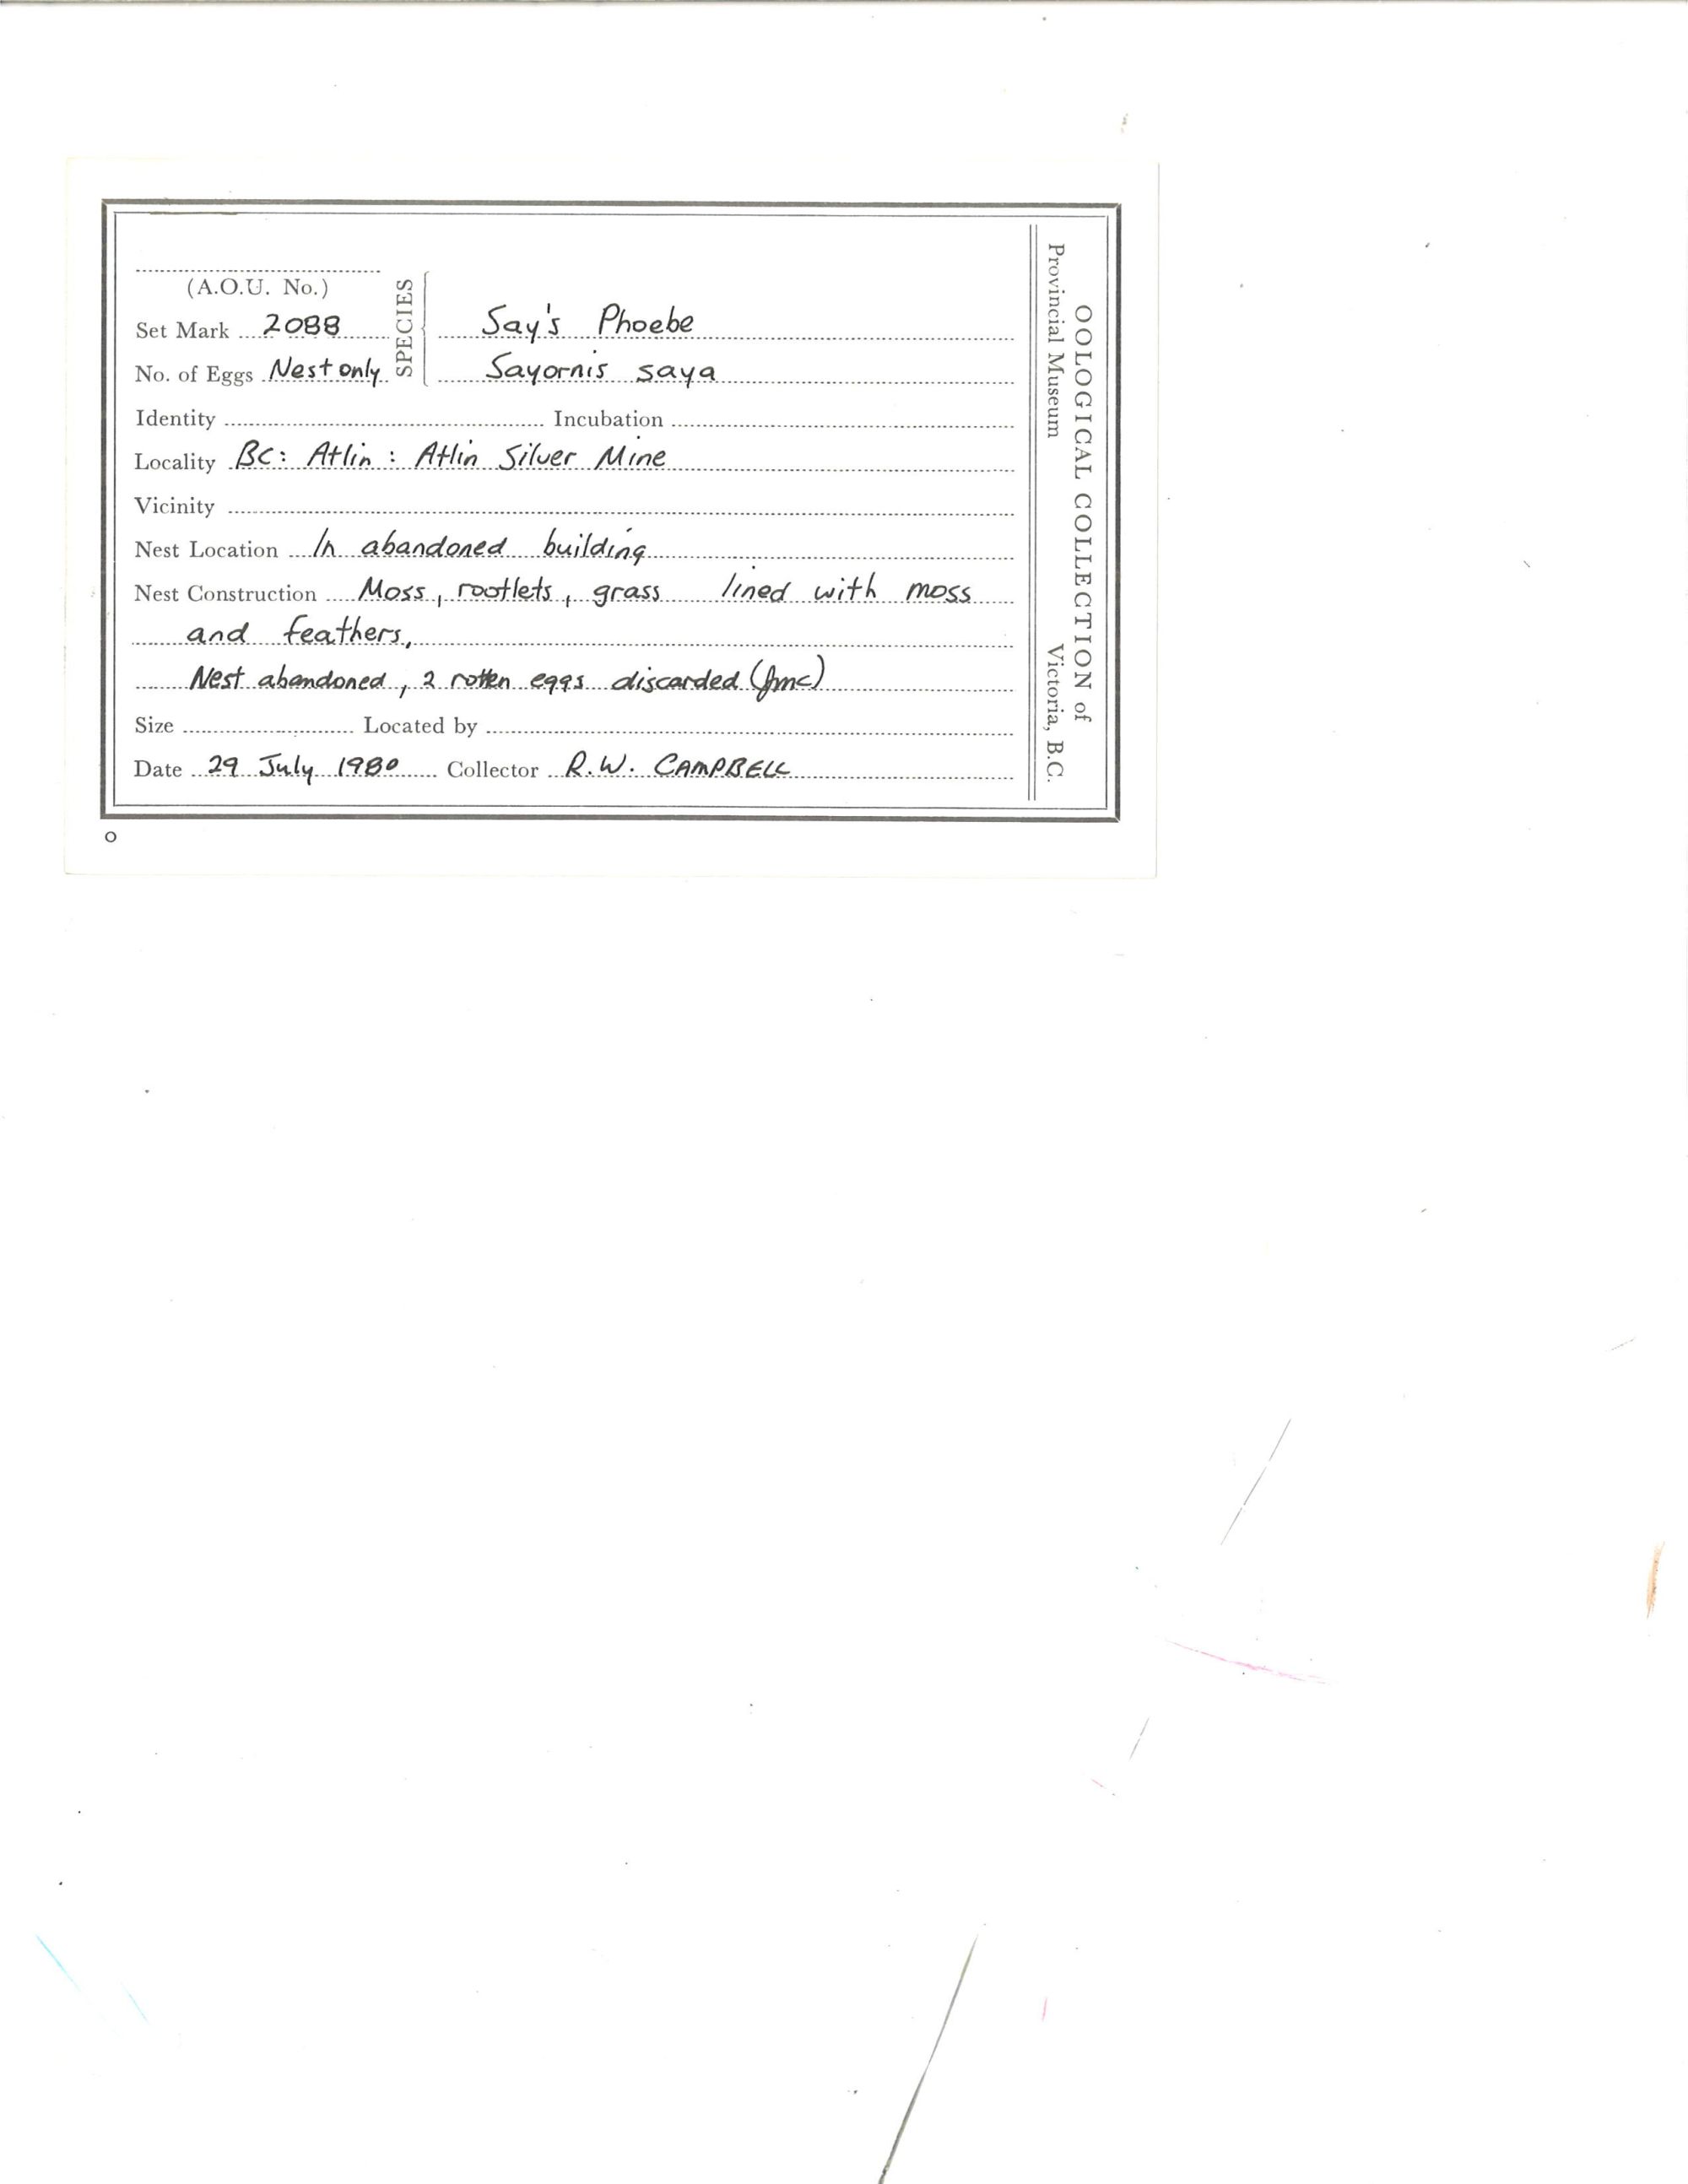 (A.O.U. No.)
SPECIES
Set Mark 2088 Say's Phoebe
No. of Eggs Nest only Sayornis saya
Identity Incubation
Locality BC: Atlin : Atlin Silver Mine
Vicinity
Nest Location In abandoned building
Nest Construction Moss, rootlets, grass lined with moss
and feathers,
Nest abandoned, 2 rotten eggs discarded (Jmc)
Size Located by
Date 29 July 1980 Collector R.W. CAMPBELL
OOLOGICAL COLLECTION of
Provincial Museum Victoria, B.C.